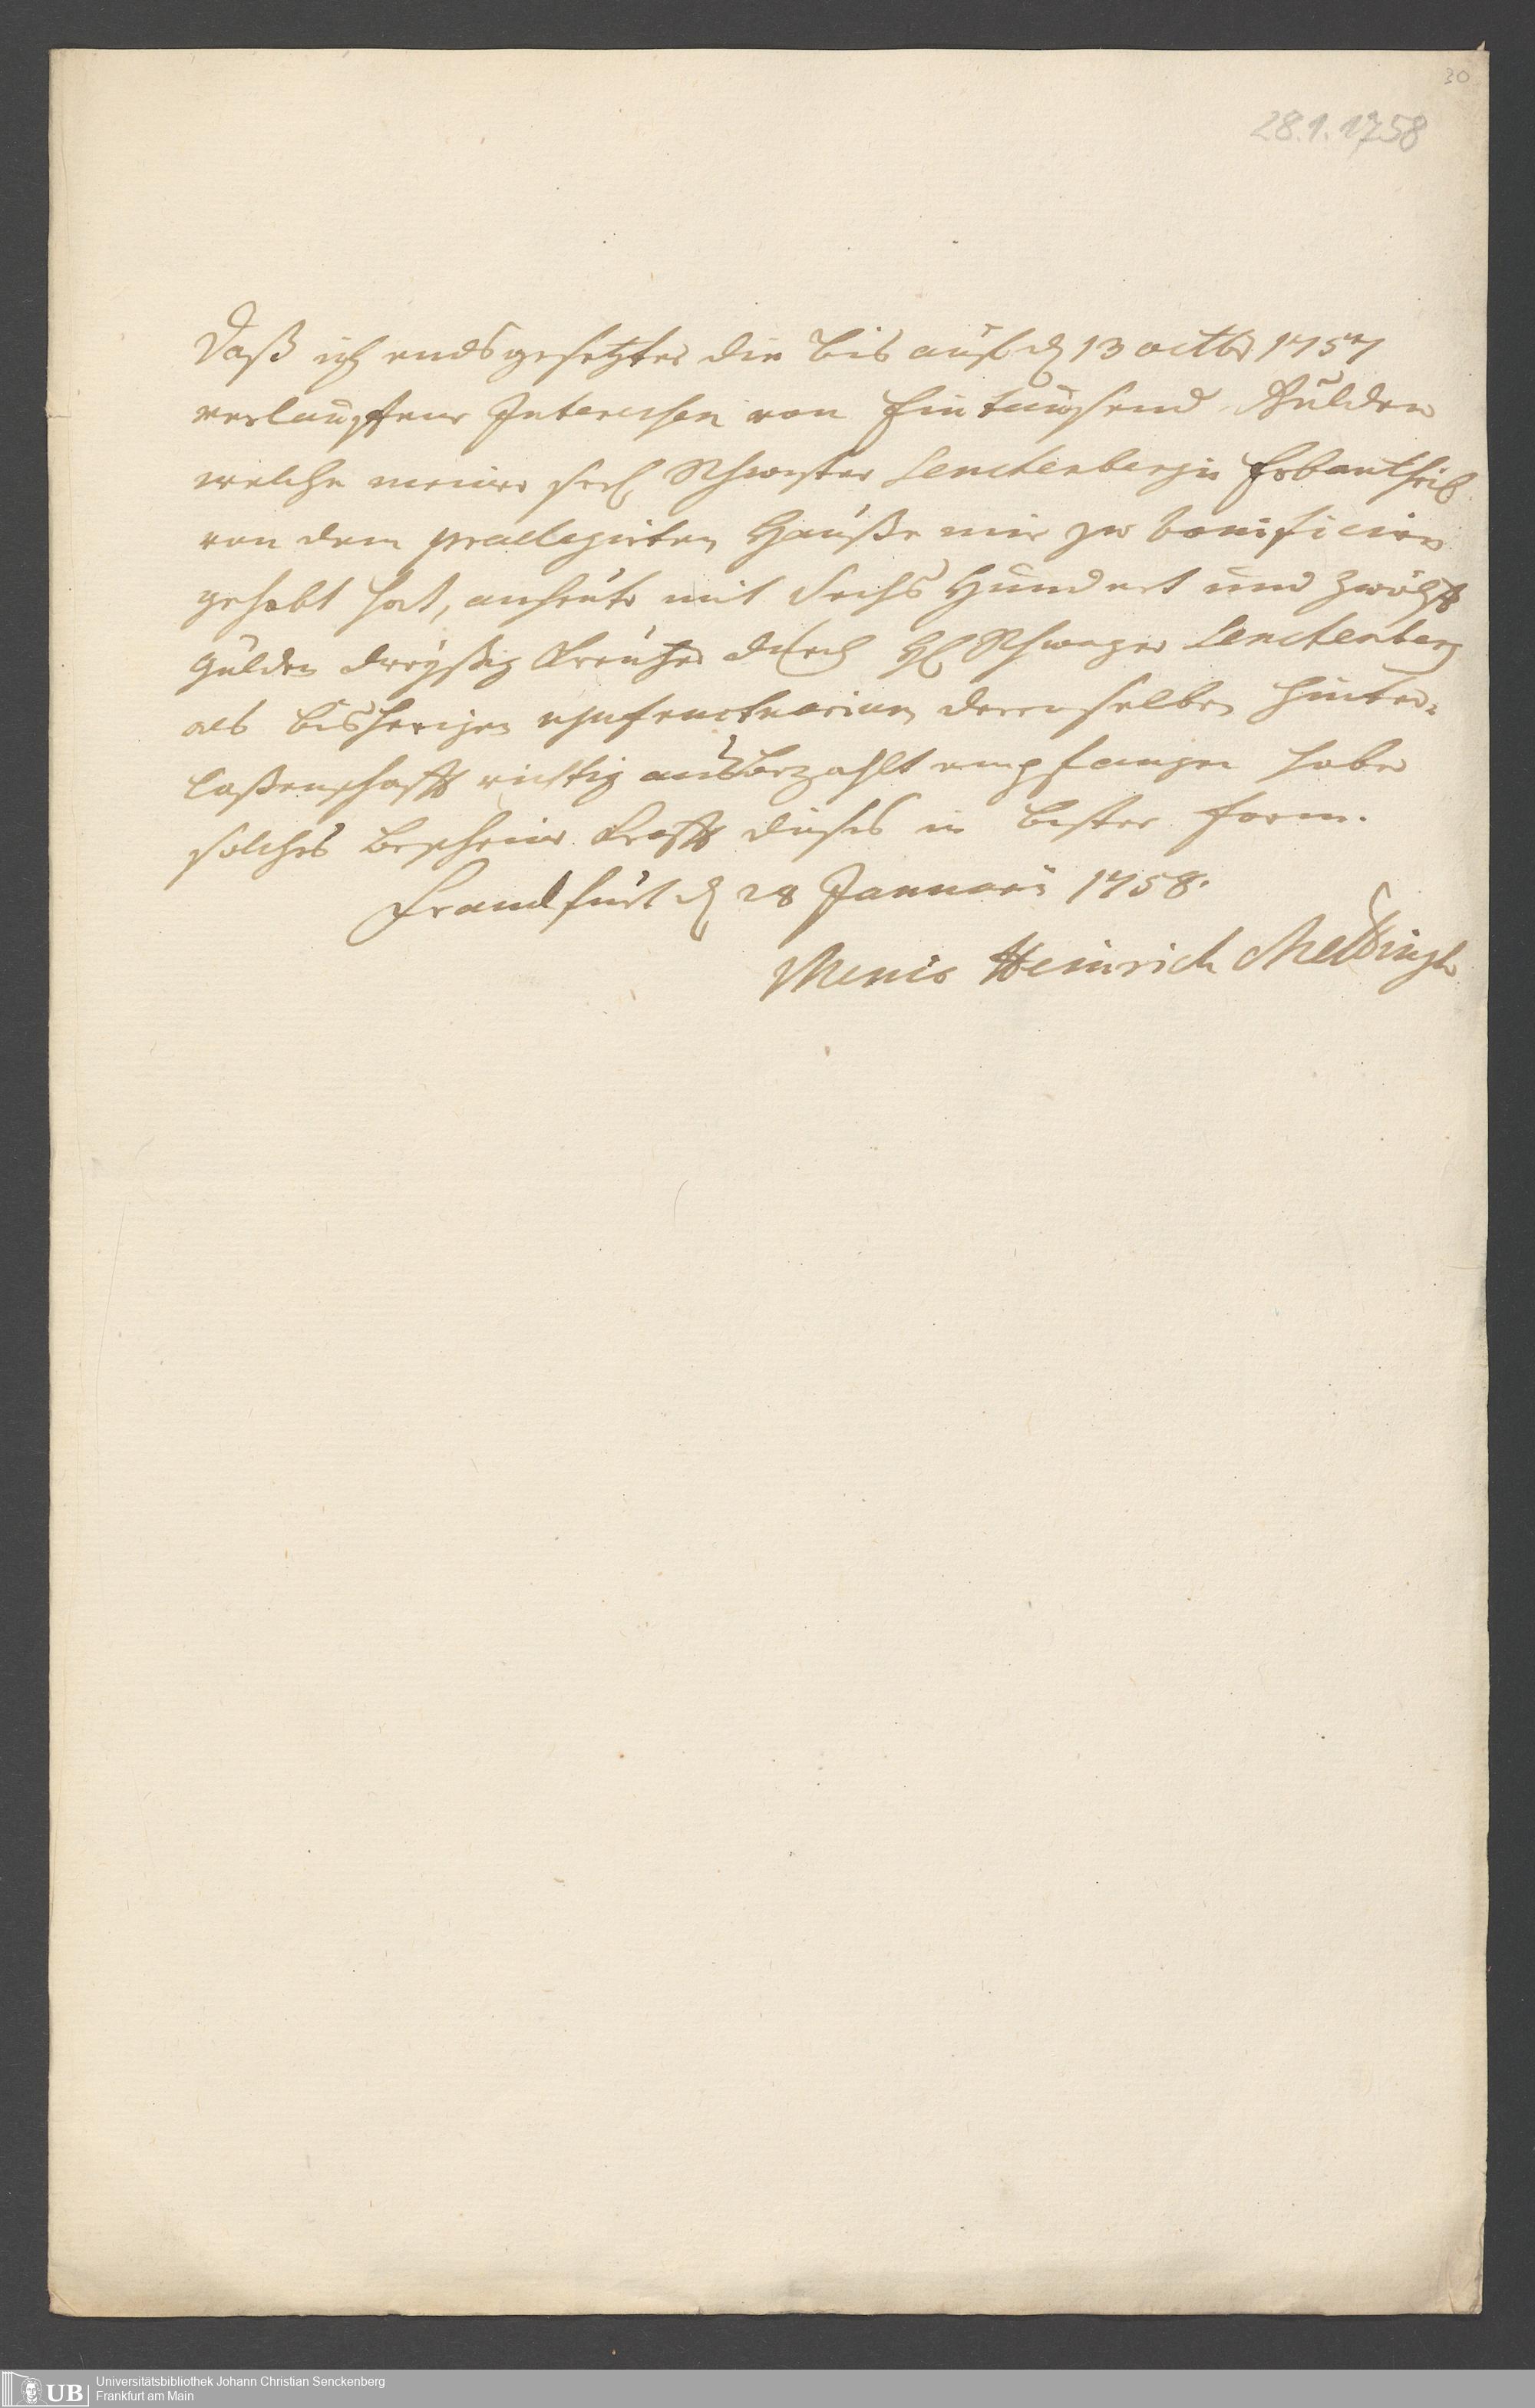 30
28.1.1758
Daß ich endsgesetzter die bis auf d 13 octbr 1757
verlauffene Interessen von Ein tausend Gulden
welche meiner seel Schwester Senckenbergin Erbantheil
von dem praelegirten Hauße mir zu bonificiren
gehabt hat, anheute mit Sechs Hundert und zwölff
Gulden dreyßig Kreutzer durch H Schwager Senckenberg
als bisherigen usufructuarium derenselben Hinter-
laßenschafft richtig ausbezahlt empfangen habe
solches bescheine Krafft dieses in bester Form.
Franckfurt d 28 Januarii 1758.
Heinrich Mettingh
UB
Universitätsbibliothek Johann Christian Senckenberg
Frankfurt am Main